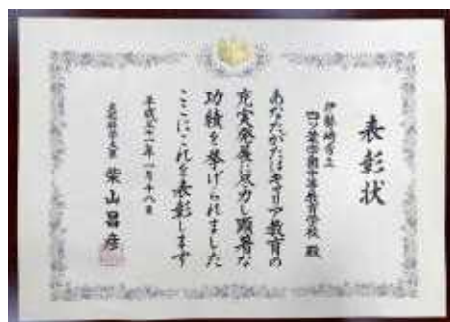 表彰状
伊勢崎市立
四ツ葉学園中等教育学校 殿
あなたがたはキャリア教育の
充実発展に尽力し顕著な
功績を挙げられました
ここにこれを表彰します
平成三十一年一月十八日
文部科学大臣 柴山昌彦